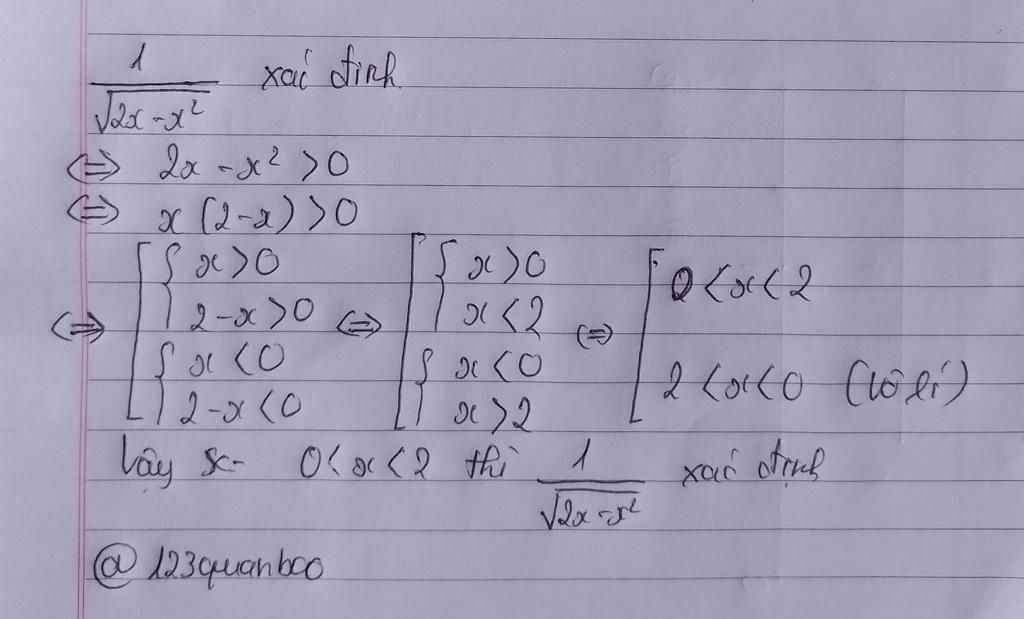 1/√(2x-x²) xác định
⇔ 2x-x² > 0
⇔ x(2-x) > 0
⇔ [ { x>0 ⇔ [ { x>0 ⇔ [ 0<x<2
2-x>0 x<2
{ x<0 { x<0 2<x<0 (vô lí)
2-x<0 x>2
Vậy 0<x<2 thì 1/√(2x-x²) xác định
@123quanboo